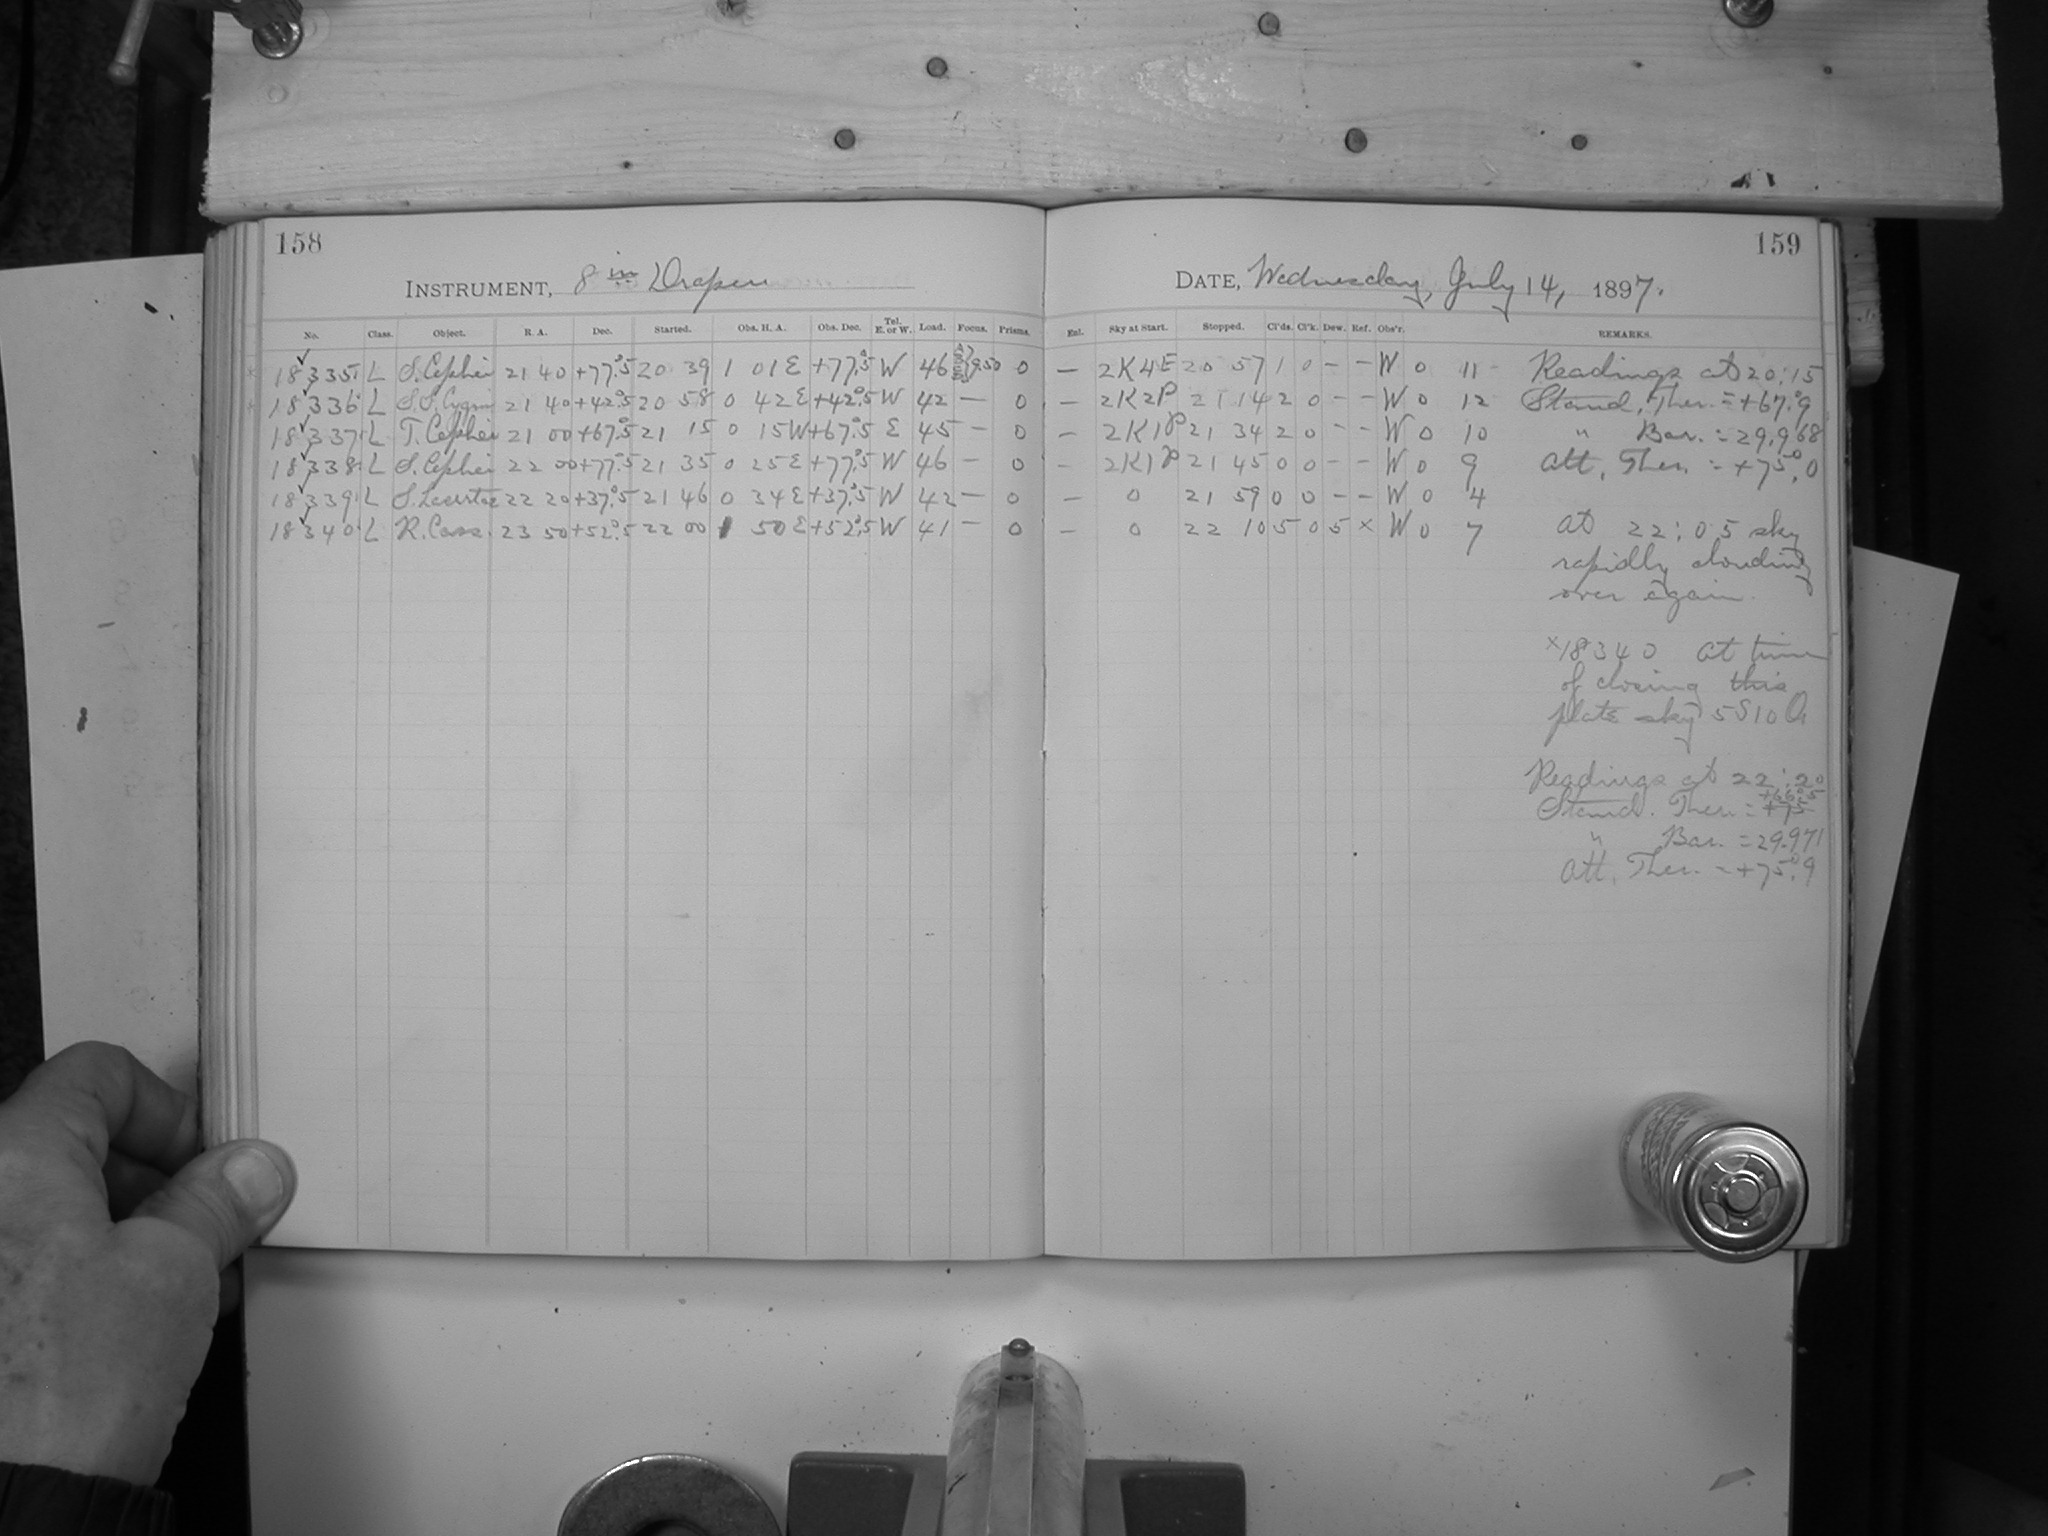 158
159
INSTRUMENT, 8 in Draper
DATE, Wednesday, July 14, 1897.
No. Class. Object. R. A. Dec. Started. Obs. H. A. Obs. Dec. Tel. E. or W. Load. Focus. Prisms. Enl. Sky at Start. Stopped. Cl'ds. Cl'k. Dew. Ref. Obs'r. REMARKS.
18335 L S. Cephei 21 40 +77°.5 20 39 1 01 E +77°.5 W 46 9.50 0 — 2K4E 20 57 1 0 - - W 0 11 Readings at 20:15
18336 L S.S. Cygni 21 40 +42°.5 20 58 0 42 E +42°.5 W 42 — 0 — 2K2P 21 14 2 0 - - W 0 12 Stand. Ther. = +67°.9
18337 L T. Cephei 21 00 +67°.5 21 15 0 15 W +67°.5 E 45 — 0 — 2K1P 21 34 2 0 - - W 0 10 " Bar. = 29.968
18338 L S. Cephei 22 00 +77°.5 21 35 0 25 E +77°.5 W 46 — 0 — 2K1P 21 45 0 0 - - W 0 9 Att. Ther. = +75°.0
18339 L S. Lacertae 22 20 +37°.5 21 46 0 34 E +37°.5 W 42 — 0 — 0 21 59 0 0 - - W 0 4
18340 L R. Cass. 23 50 +52°.5 22 00 1 50 E +52°.5 W 41 — 0 — 0 22 10 5 0 5 × W 0 7 At 22:05 sky
rapidly clouding
over again.
×18340 At time
of closing this
plate sky 5S10
Readings at 22:20
Stand. Ther. =
" Bar. = 29.971
Att. Ther. = +75°.9